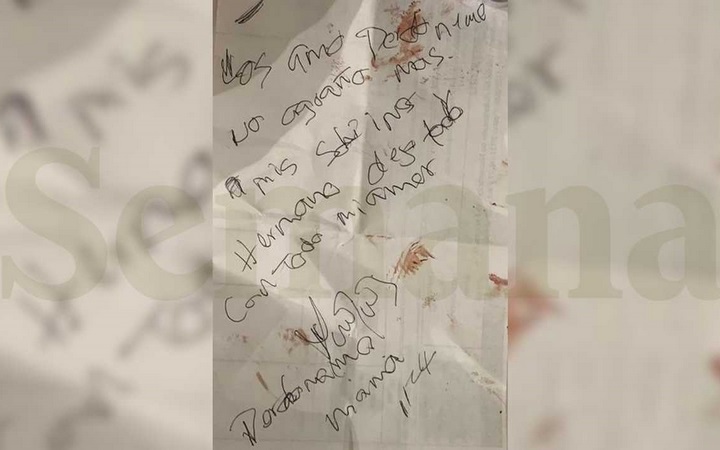 Los amo Perdonenme
no aguanto mas.
A mis sobrinos
Hermano dejo todo
Con Todo mi amor
Perdoname
mamá
11-4
Semana